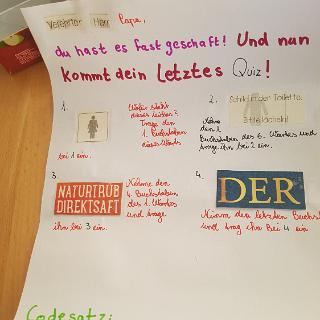 Verehrter Herr Papa,
du hast es fast geschaft! Und nun
kommt dein letztes Quiz!
1.
Wofür steht
dieses Zeichen?
Trage den
1. Buchstaben
dieses Worts
bei 1 ein.
2. Schild in der Toilette:
Bitte lächeln!
Nehme
den 1.
Buchstaben des 6. Wortes und
trage ihn bei 2 ein.
3.
NATURTRÜB
DIREKTSAFT
Nehme den
4. Buchstaben
des 1. Wortes
und trage
ihn bei 3 ein.
4.
DER
Nimm den letzten Buchst
und trag ihn bei 4 ein
Codesatz: